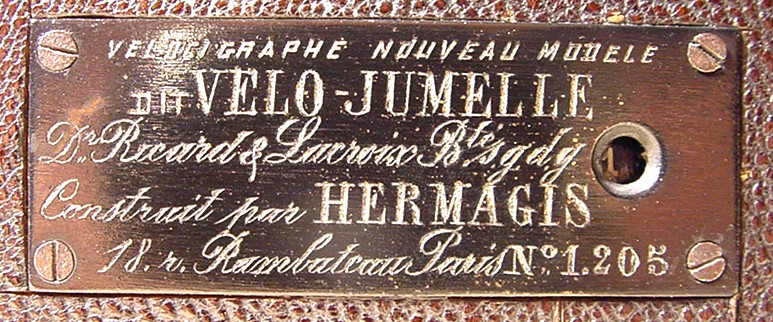 VELOCIGRAPHE NOUVEAU MODELE
DIT VELO-JUMELLE
Dr. Ricard & Lacroix Bte s g d g
Construit par HERMAGIS
18. r. Rambuteau Paris No. 1.205